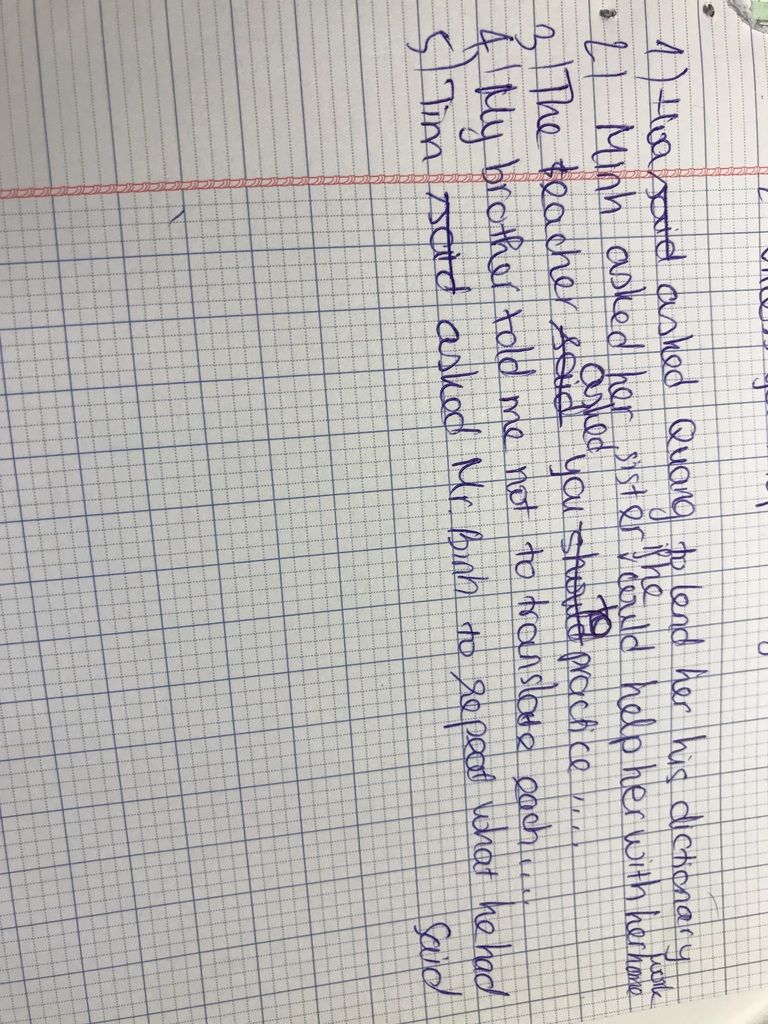 1) Hoa said asked Quang to lend her his dictionary
2) Minh asked her sister if he could help her with her homework
3) The teacher said asked you should to practice ....
4) My brother told me not to translate each....
5) Tim said asked Mr. Binh to repeat what he had said